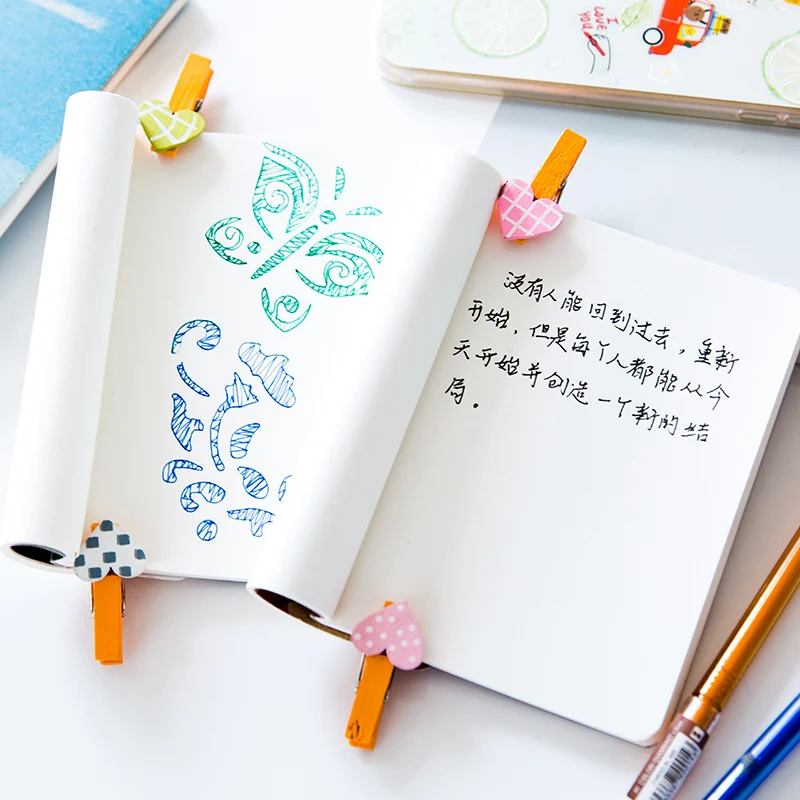 I
LOVE
YOU
没有人能回到过去，重新
开始，但是每个人都能从今
天开始并创造一个新的结
局。